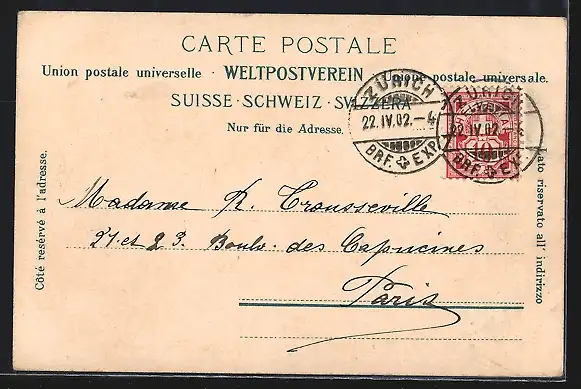 CARTE POSTALE
Union postale universelle · WELTPOSTVEREIN · Unione postale universale.
SUISSE · SCHWEIZ · SVIZZERA
Nur für die Adresse.
ZÜRICH
22.IV.02.–4
BRF. EXP.
ZÜRICH
22.IV.02.–4
BRF. EXP.
10
Côté reservé à l'adresse.
Lato riservato all' indirizzo
Madame R. Trousseville
21 et 23. Boulv. des Capucines
Paris